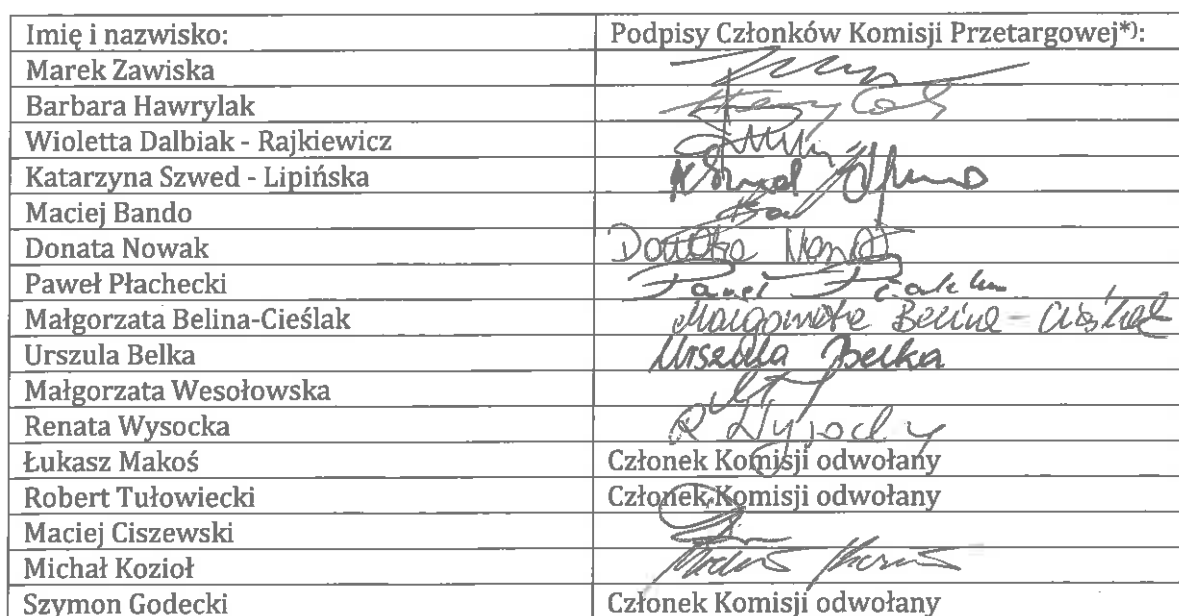 Imię i nazwisko: Podpisy Członków Komisji Przetargowej*):
Marek Zawiska
Barbara Hawrylak
Wioletta Dalbiak - Rajkiewicz
Katarzyna Szwed - Lipińska
Maciej Bando
Donata Nowak
Paweł Płachecki Paweł
Małgorzata Belina-Cieślak Małgorzata Belina - Cieślak
Urszula Belka Urszula Belka
Małgorzata Wesołowska
Renata Wysocka
Łukasz Makoś Członek Komisji odwołany
Robert Tułowiecki Członek Komisji odwołany
Maciej Ciszewski
Michał Kozioł
Szymon Godecki Członek Komisji odwołany